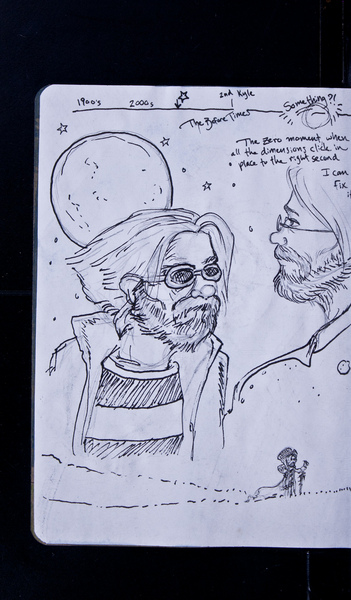 1900's 2000s 2nd Kyle Something?!
The Before Times
The zero moment when
all the dimensions click in
place to the right second
I can
fix
it